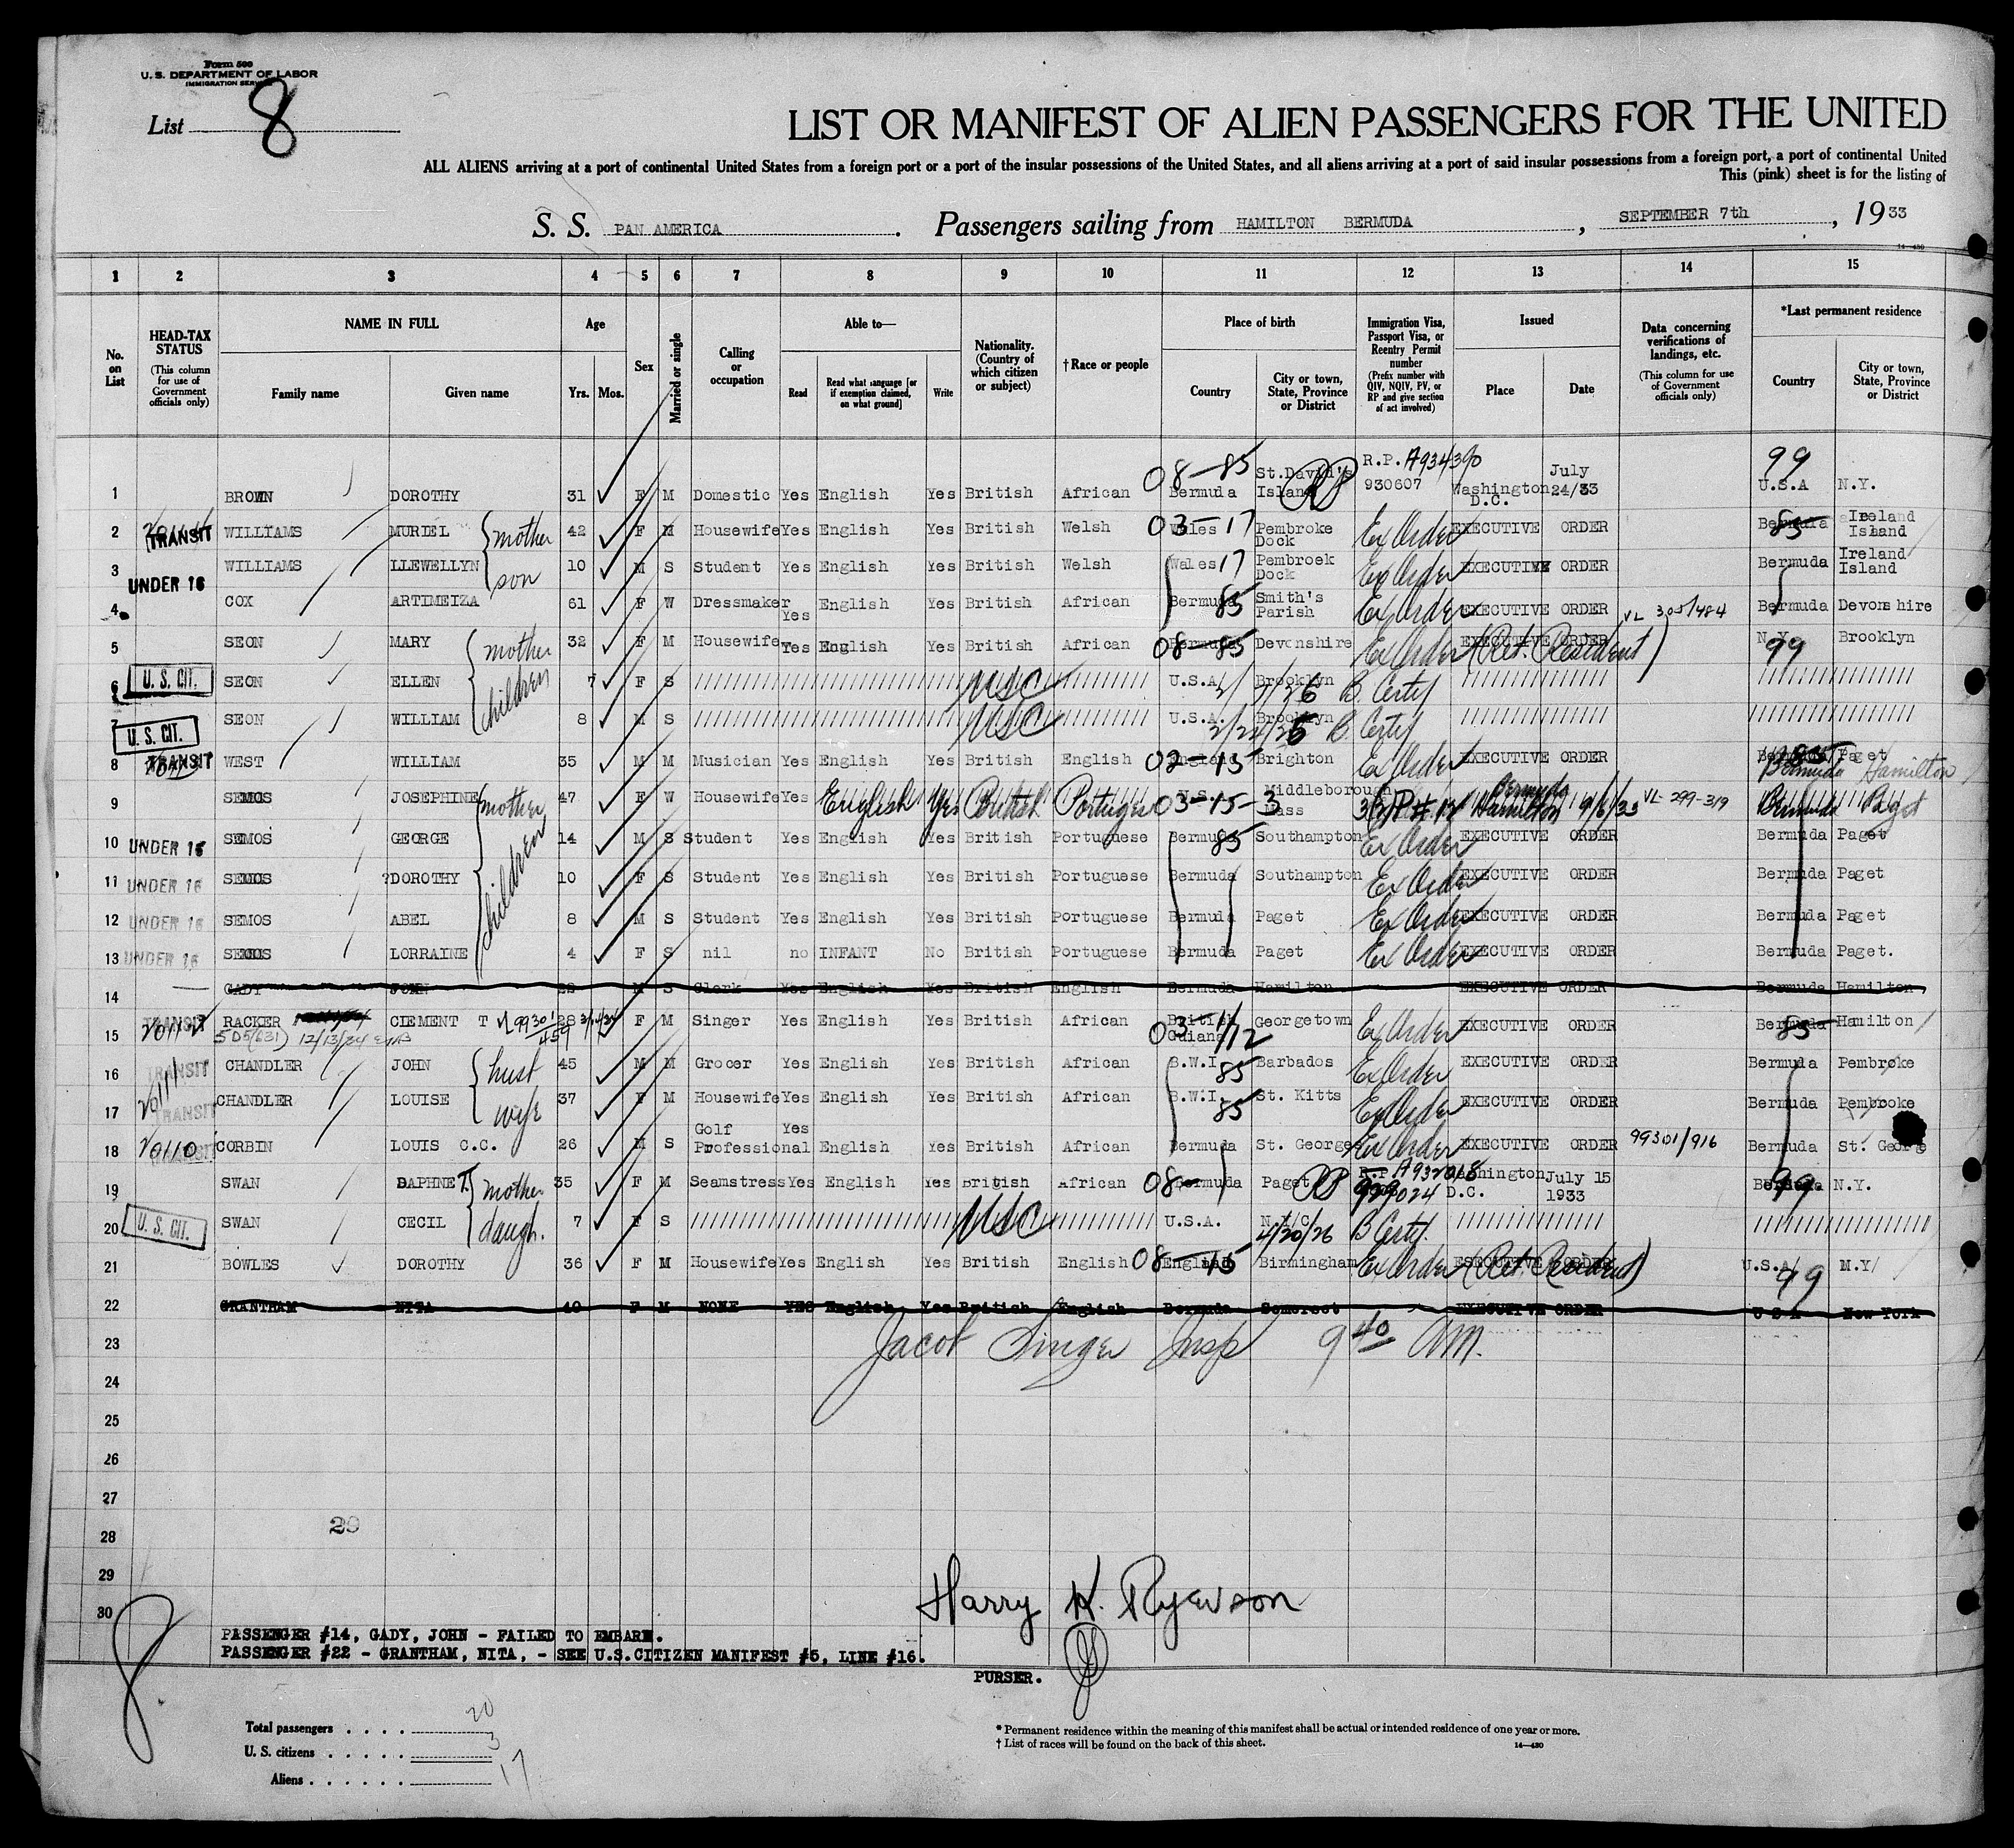 Form 500
U. S. DEPARTMENT OF LABOR
IMMIGRATION SERVICE
List 8
LIST OR MANIFEST OF ALIEN PASSENGERS FOR THE UNITED
ALL ALIENS arriving at a port of continental United States from a foreign port or a port of the insular possessions of the United States, and all aliens arriving at a port of said insular possessions from a foreign port, a port of continental United
This (pink) sheet is for the listing of
S. S. PAN AMERICA . Passengers sailing from HAMILTON BERMUDA , SEPTEMBER 7th , 1933
14—430
1 2 3 4 5 6 7 8 9 10 11 12 13 14 15
No. on List
HEAD-TAX STATUS (This column for use of Government officials only)
NAME IN FULL
Family name Given name
Age
Yrs. Mos.
Sex
Married or single
Calling or occupation
Able to—
Read Read what language [or if exemption claimed, on what ground] Write
Nationality. (Country of which citizen or subject)
†Race or people
Place of birth
Country City or town, State, Province or District
Immigration Visa, Passport Visa, or Reentry Permit number (Prefix number with QIV, NQIV, PV, or RP and give section of act involved)
Issued
Place Date
Data concerning verifications of landings, etc. (This column for use of Government officials only)
*Last permanent residence
Country City or town, State, Province or District
1 BROWN DOROTHY 31 F M Domestic Yes English Yes British African 08-85 Bermuda St.David's Island R.P. A934390 930607 Washington D.C. July 24/33 99 U.S.A N.Y.
2 TRANSIT WILLIAMS MURIEL mother 42 F M Housewife Yes English Yes British Welsh 03-17 Wales Pembroke Dock Ex Order EXECUTIVE ORDER Bermuda 85 Ireland Island
3 UNDER 16 WILLIAMS LLEWELLYN son 10 M S Student Yes English Yes British Welsh Wales 17 Pembroek Dock Ex Order EXECUTIVE ORDER Bermuda Ireland Island
4 COX ARTIMEIZA 61 F W Dressmaker Yes English Yes British African Bermuda 85 Smith's Parish Ex Order EXECUTIVE ORDER VL 305/484 Bermuda Devonshire
5 SEON MARY mother 32 F M Housewife Yes Eng English Yes British African 08-85 Bermuda Devonshire Ex Order EXECUTIVE ORDER (Ret. Resident) N.Y. 99 Brooklyn
6 U. S. CIT. SEON ELLEN children 7 F S USC U.S.A. Brooklyn B. Certf
7 U. S. CIT. SEON WILLIAM 8 M S USC U.S.A. Brooklyn B. Certf
8 TRANSIT WEST WILLIAM 35 M M Musician Yes English Yes British English 02-15 England Brighton Ex Order EXECUTIVE ORDER Bermuda 85 Paget
Bermuda Hamilton
9 SEMOS JOSEPHINE mother 47 F W Housewife Yes English Yes British Portuguese 03-15-3 U.S. Middleborough Mass Bermuda Hamilton 9/6/33 VL 299-319 Bermuda Paget
10 UNDER 16 SEMOS GEORGE children 14 M S Student Yes English Yes British Portuguese Bermuda 85 Southampton Ex Order EXECUTIVE ORDER Bermuda Paget
11 UNDER 16 SEMOS ?DOROTHY 10 F S Student Yes English Yes British Portuguese Bermuda Southampton Ex Order EXECUTIVE ORDER Bermuda Paget
12 UNDER 16 SEMOS ABEL 8 M S Student Yes English Yes British Portuguese Bermuda Paget Ex Order EXECUTIVE ORDER Bermuda Paget
13 UNDER 16 SEMOS LORRAINE 4 F S nil no INFANT No British Portuguese Bermuda Paget Ex Order EXECUTIVE ORDER Bermuda Paget.
14 GADY JOHN 28 M S Clerk Yes English Yes British English Bermuda Hamilton EXECUTIVE ORDER Bermuda Hamilton
15 TRANSIT RACKER CLEMENT T 99301/459 28 F M Singer Yes English Yes British African 03-1/12 British Guiana Georgetown Ex Order EXECUTIVE ORDER Bermuda 85 Hamilton
12/13/24
16 TRANSIT CHANDLER JOHN hust 45 M M Grocer Yes English Yes British African B.W.I 85 Barbados Ex Order EXECUTIVE ORDER Bermuda Pembroke
17 TRANSIT CHANDLER LOUISE wife 37 F M Housewife Yes English Yes British African B.W.I. 85 St. Kitts Ex Order EXECUTIVE ORDER Bermuda Pembroke
18 TRANSIT CORBIN LOUIS C.C. 26 M S Golf Professional Yes English Yes British African Bermuda St. George Ex Order EXECUTIVE ORDER 99301/916 Bermuda St. George
19 SWAN DAPHNE T. mother 35 F M Seamstress Yes English Yes British African 08- Bermuda Paget R.P. A932018 929024 Washington D.C. July 15 1933 Bermuda 99 N.Y.
20 U. S. CIT. SWAN CECIL daugh. 7 F S USC U.S.A. N.Y.C. 4/20/26 B Certf.
21 BOWLES DOROTHY 36 F M Housewife Yes English Yes British English 08-15 England Birmingham Ex Order EXECUTIVE ORDER (Ret. Resident) U.S.A/ 99 M.Y/
22 GRANTHAM NITA 40 F M NONE YES English Yes British English Bermuda Somerset EXECUTIVE ORDER U S A New York
23 Jacob Singer Insp 9 40 AM.
24
25
26
27
28 29
29
30 Harry H. Ryerson
PASSENGER #14, GADY, JOHN - FAILED TO EMBARK.
PASSENGER #22 - GRANTHAM, NITA, - SEE U.S.CITIZEN MANIFEST #5, LINE #16.
PURSER.
8
Total passengers . . . . 20
U. S. citizens . . . . . 3
Aliens . . . . . . 17
* Permanent residence within the meaning of this manifest shall be actual or intended residence of one year or more.
† List of races will be found on the back of this sheet.
14—430